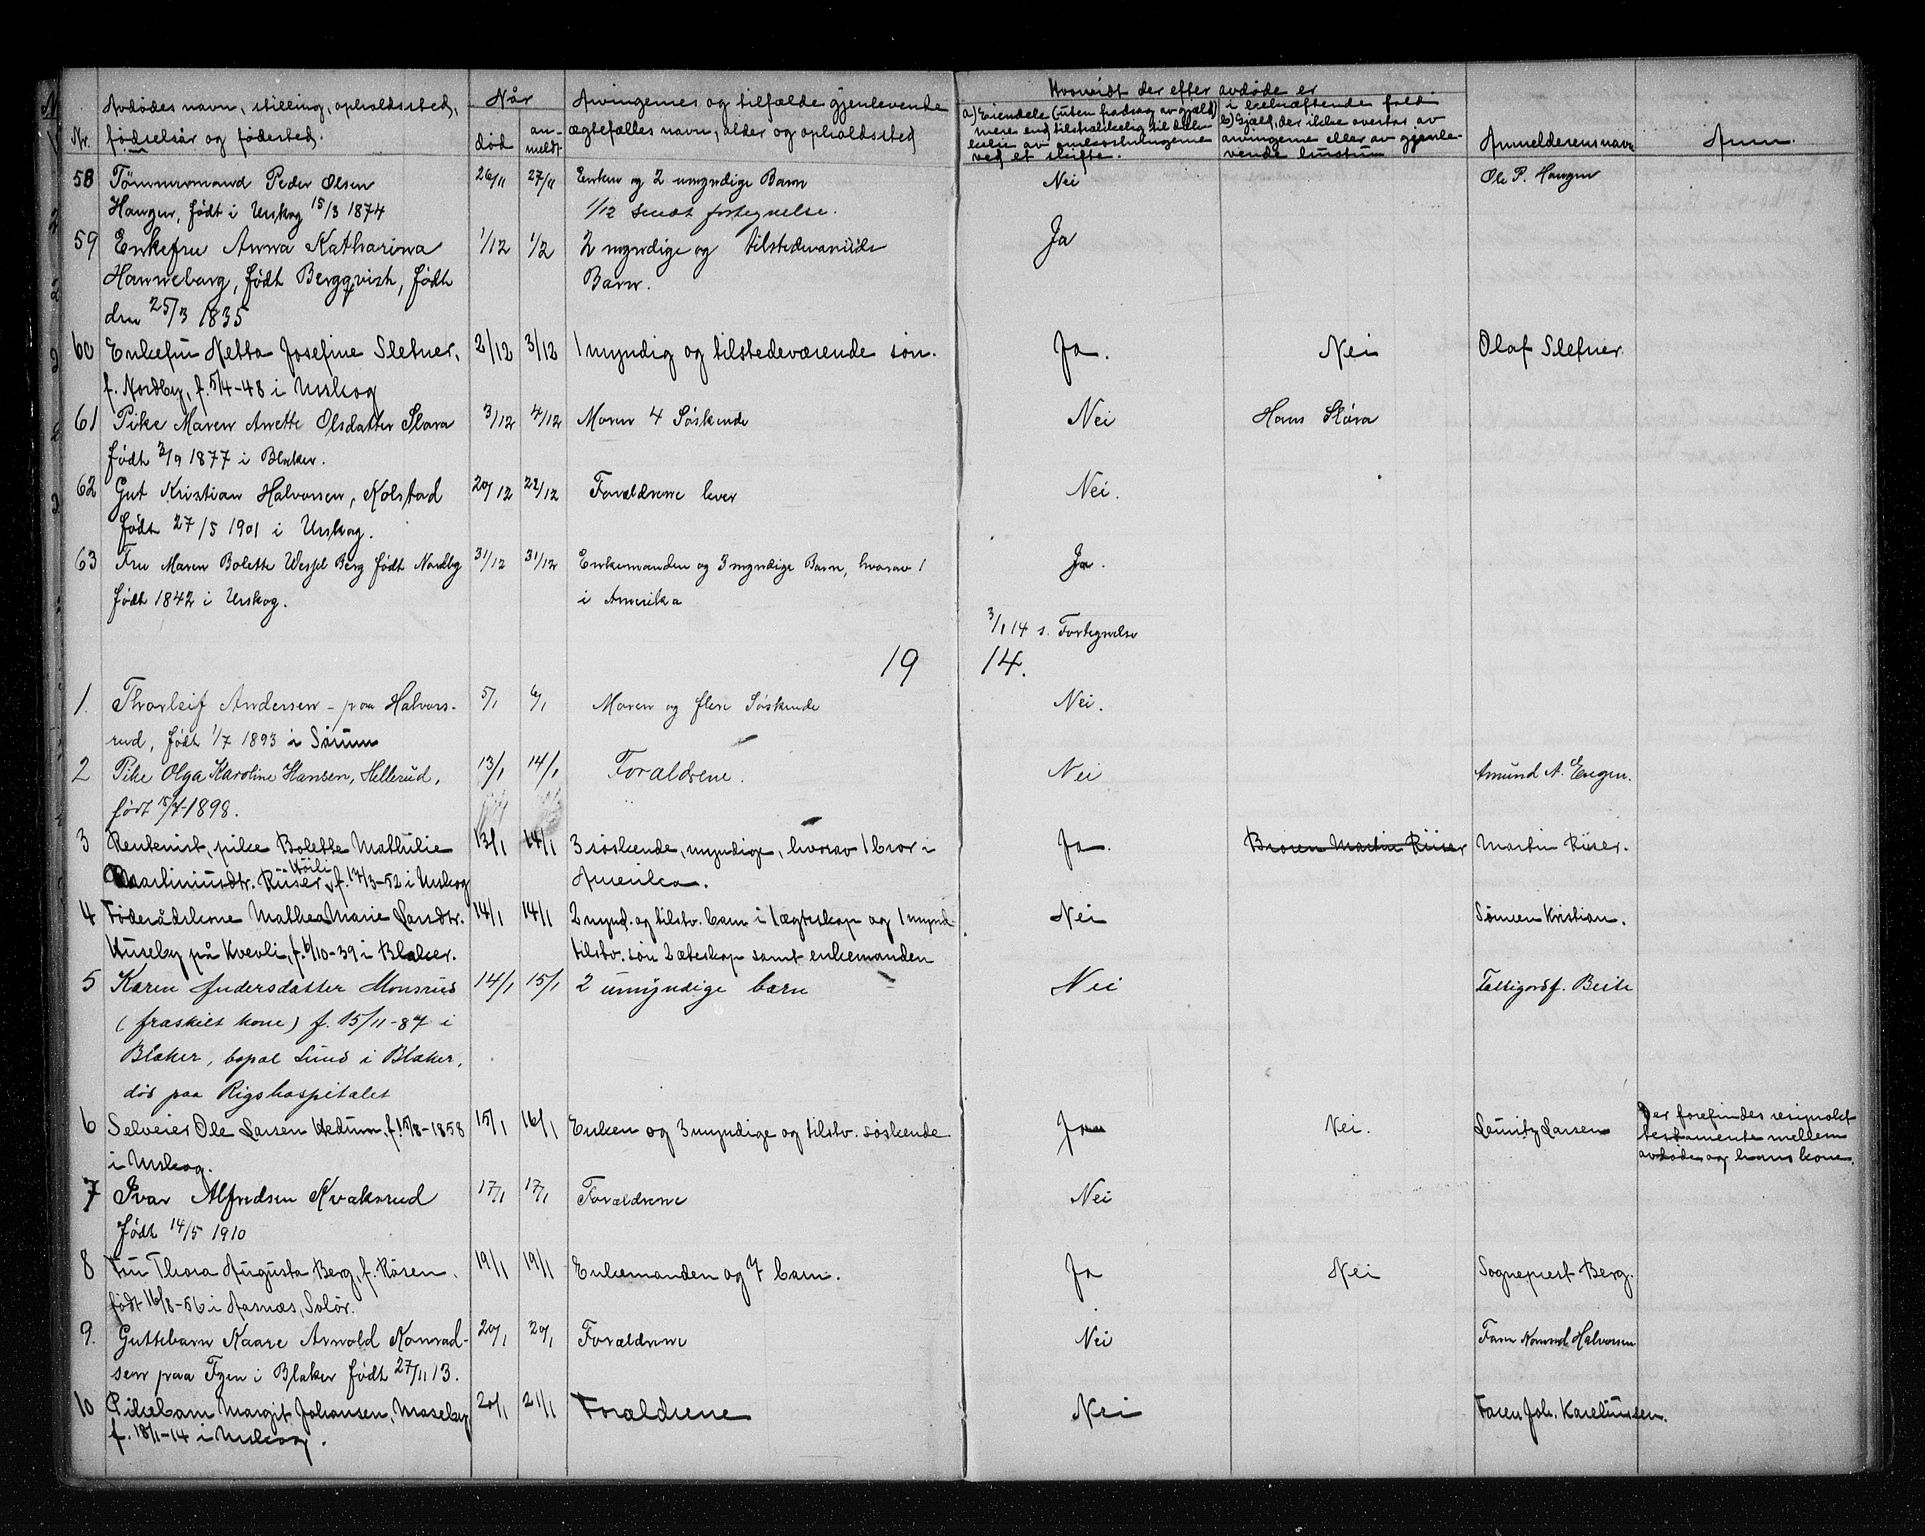 Nr.
Avdødes navn, stilling, opholdssted,
fødselsår og fødested.
Når
død
an-
meldt
Arvingernes og tilfælde gjenlevende
ægtefælles navn, alder og opholdssted
Hvorvidt der efter avdøde er
a) Eiendele (uten fradrag av gjæld)
mere end tilstrækkelig til dæk-
kelse av omkostningerne
ved et skifte.
i bekræftende fald
b) Gjæld, der ikke overtas av
arvingerne eller av gjenle-
vende
Anmelderens navn
Anm.
58 Tømmermand Peder Olsen 26/11 27/11 Enken og 2 umyndige Barn Nei Ole P. Haugen
Haugen, født i Urskog 15/3 1874 1/12 Sendt fortegnelse.
59 Enkefru Anna Katharina 1/12 1/2 2 myndige og tilstedeværende Ja
Hanneborg, født Bergqvist, født Barn.
den 25/3 1835
60 Enkefru Netta Josefine Slefner, 2/12 3/12 1 myndig og tilstedeværende søn. Ja. Nei Olaf Slefner.
f. Nordby, f. 5/4-48 i Urskog
61 Pike Maren Anette Olsdatter Slora 3/12 4/12 Moren 4 Søskende Nei Hans Slora
født 3/9 1877 i Blaker.
62 Gut Kristian Halvorsen, Kolstad 20/12 22/12 Forældrene lever Nei.
født 27/5 1901 i Urskog.
63 Fru Maren Bolette Wessel Berg født Nordby 31/12 31/12 Enkemanden og 3 myndige Barn, hvorav 1 Ja.
født 1842 i Urskog. i Amerika
3/1 14 s. Fortegnelse
19 14.
1. Thorleif Andersen - paa Halvors- 5/1 6/1 Moren og flere Søskende Nei.
rud, født 1/7 1893 i Sørum
2 Pike Olga Karoline Hansen, Hellerud, 13/1 14/1 Forældrene. Nei Amund A. Engen.
født 15/4-1898.
3 Rentenist, pike Bolette Mathilie 13/1 14/1 3 søskende, myndige, hvorav 1 bror i Ja. Broren Martin Riiser Martin Riiser.
Martiniusdtr. Riiser Høili, f. 14/3-52 i Urskog Amerika.
4 Føderådskone Mathea Marie Larsdtr. 14/1 14/1 2 mynd. og tilstv. barn i 1 ægteskap og 1 mynd. Nei Sønnen Kristian.
Huseby på Kvevli, f. 6/10-39 i Blaker. tilstv. søn 2 æteskap samt enkemanden
5 Karen Andersdatter Monsrud 14/1 15/1 2 umyndige børn Nei Fattigforsf. Beite
(fraskilt kone) f. 15/11-87 i
Blaker, bopæl Lund i Blaker,
død paa Rigshospitalet
6 Selveier Ole Larsen Hedum, f. 15/8-1858 15/1 16/1 Enken og 3 myndige og tilstv. søskende Ja Nei. Lauritz Larsen Der forefindes resiprokt
i Urskog. testamente mellem
avdøde og hans kone.
7 Ivar Alfredsen Kvaksrud 17/1 17/1 Forældrene Nei
født 14/5 1910
8 Fru Thora Augusta Berg, f. Råsen. 19/1 19/1 Enkemanden og 7 barn. Ja Nei Sogneprest Berg.
født 16/8-56 i Aasnæs, Solør.
9. Guttebarn Kaare Arnold Konrad- 20/1 20/1 Forældrene Nei Faren Konrad Halvorsen
sen paa Fyen i Blaker født 27/11 13.
10 Pikebarn Margit Johansen, Moseby 20/1 21/1 Forældrene Nei Faren Joh. Karelinussen.
f. 18/1-14 i Urskog.